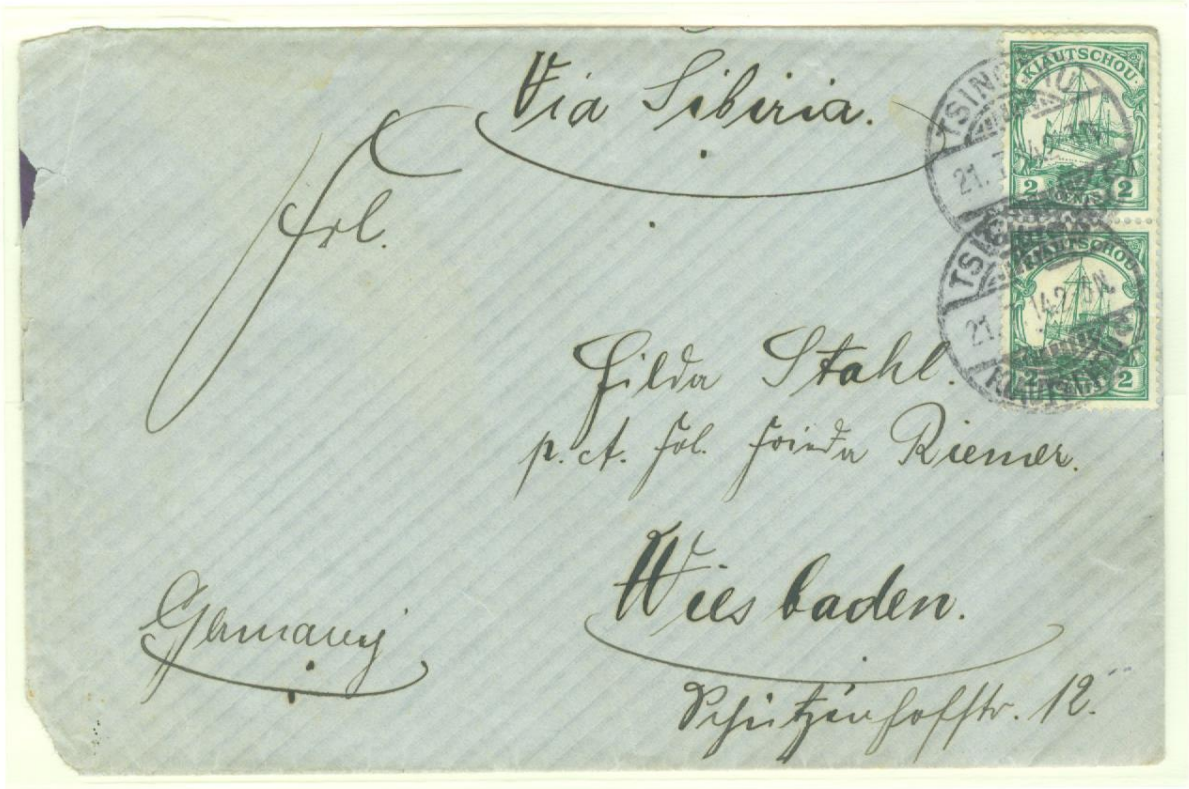 Via Sibiria.
Frl.
Hilda Stahl.
p. ct. Frl. Frieda Riemer.
Wiesbaden.
Germany
Schützenhofstr. 12.
KIAUTSCHOU
2 CENTS 2
KIAUTSCHOU
2 2
TSINGTAU
21. 14.2-3N.
TSINGTAU
21. 14.2-3N.
KIAUTSCHOU